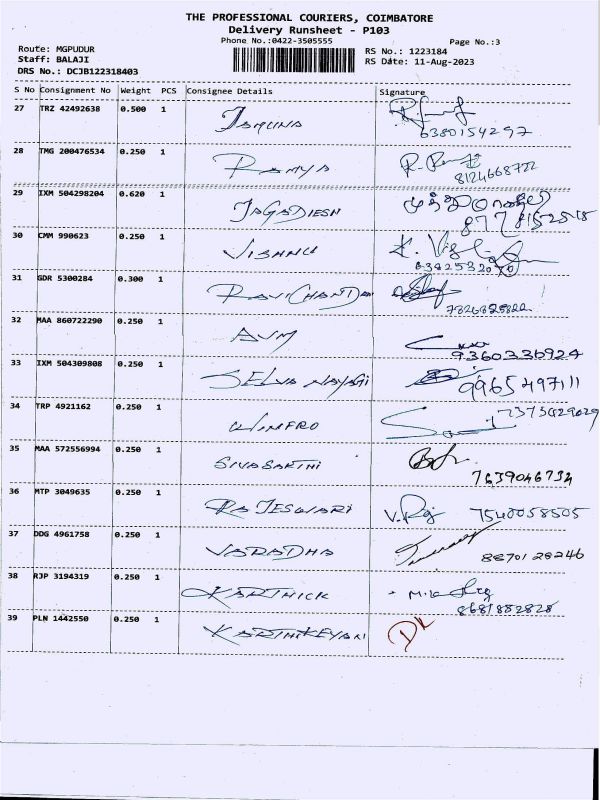 THE PROFESSIONAL COURIERS, COIMBATORE
Delivery Runsheet - P103
Phone No.:0422-3505555
Page No.:3
Route: MGPUDUR
RS No.: 1223184
Staff: BALAJI
RS Date: 11-Aug-2023
DRS No.: DCJB122318403
S No Consignment No Weight PCS Consignee Details Signature
27 TRZ 42492638 0.500 1 JAMUNA
6380154297
28 TMG 200476534 0.250 1 RAMYA
8124668722
29 IXM 504298204 0.620 1 JAGADIESH
30 CMM 990623 0.250 1 VISHNU
31 GDR 5300284 0.300 1 RAVICHANDRAN
32 MAA 860722290 0.250 1 AVM
9360336924
33 IXM 504309808 0.250 1 SELVA NAYAGI
9965497111
34 TRP 4921162 0.250 1
7373929029
35 MAA 572556994 0.250 1 SIVASAKTHI
7639046734
36 MTP 3049635 0.250 1 RAJESWARI V. Raj 7540058505
37 DDG 4961758 0.250 1 VARADHA
8870128246
38 RJP 3194319 0.250 1 KARTHICK
8681882828
39 PLN 1442550 0.250 1 KARTHIKEYAN